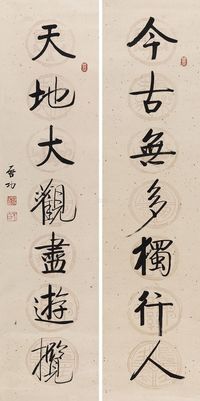 今古無多獨行人
天地大觀盡遊攬
啓功